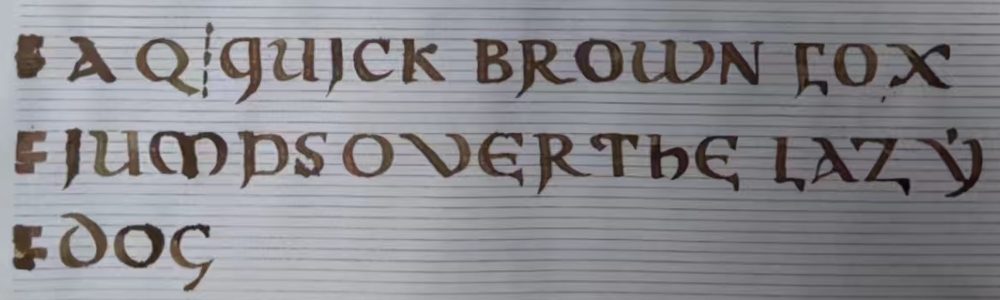 A Q¦QUICK BROWN FOX
JUMPS OVER THE LAZY
DOG